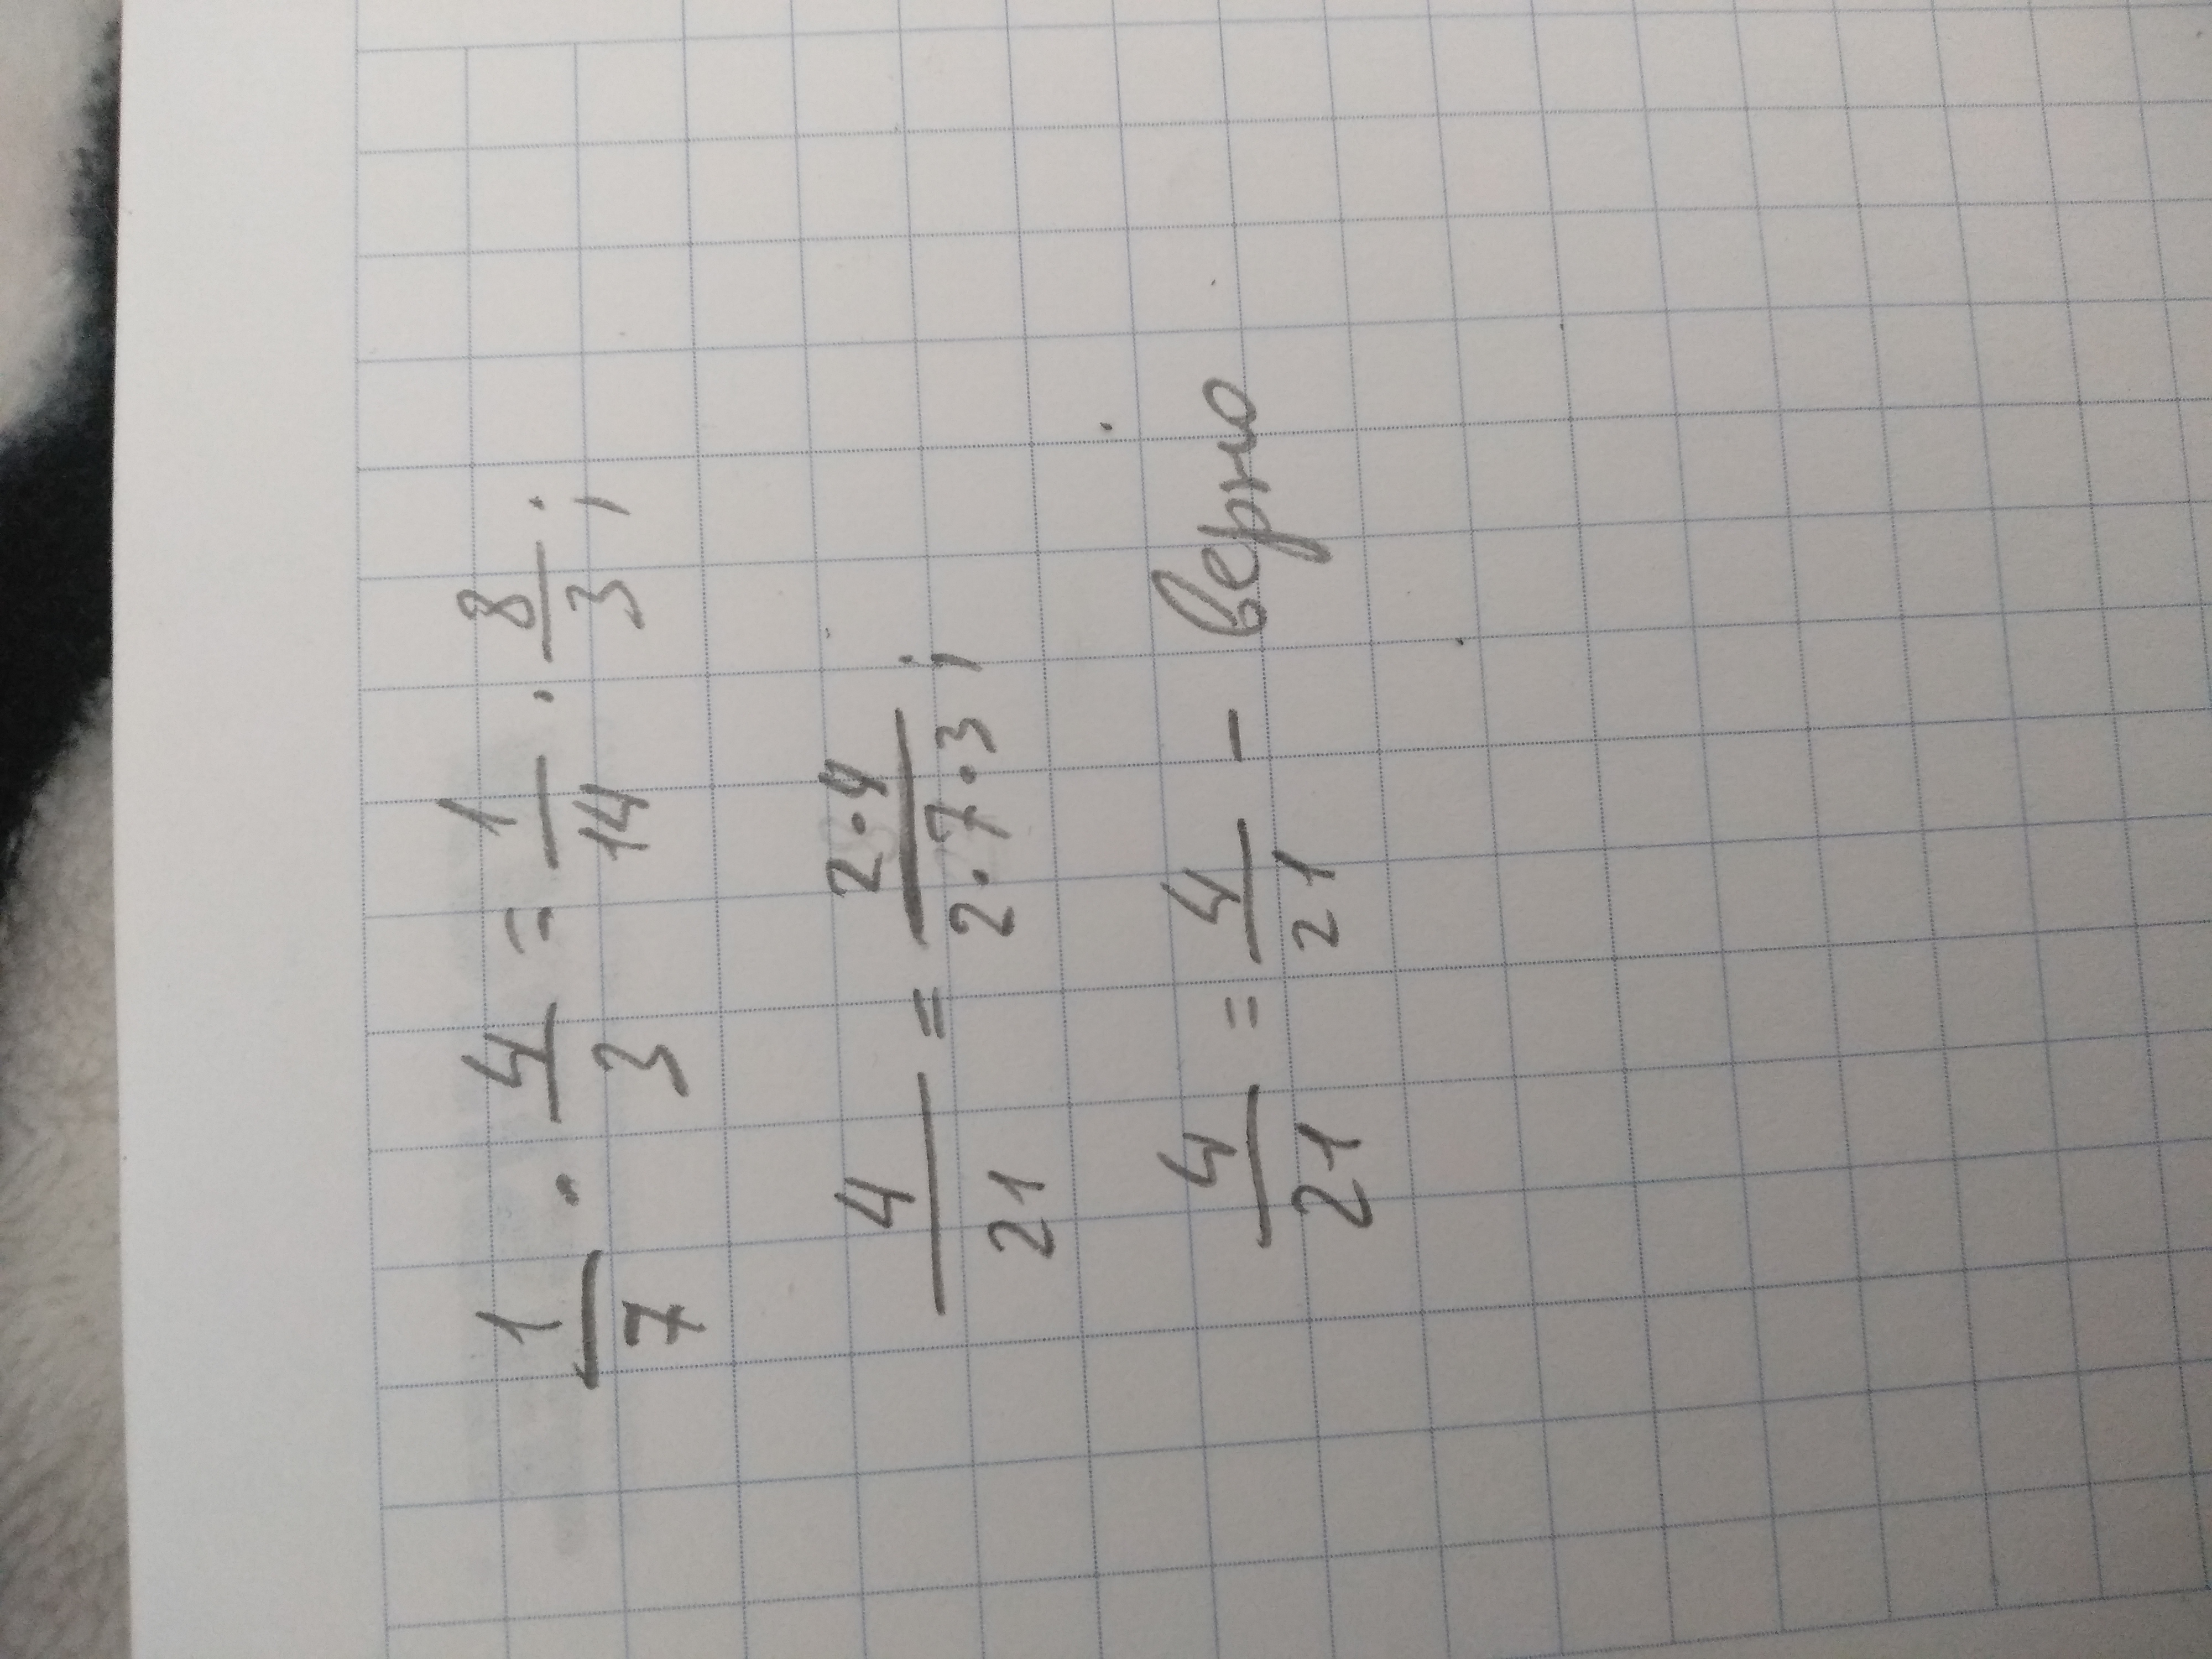 1/7 · 4/3 = 1/14 · 8/3 ;
4/21 = 2·4/2·7·3 ;
4/21 = 4/21 – верно